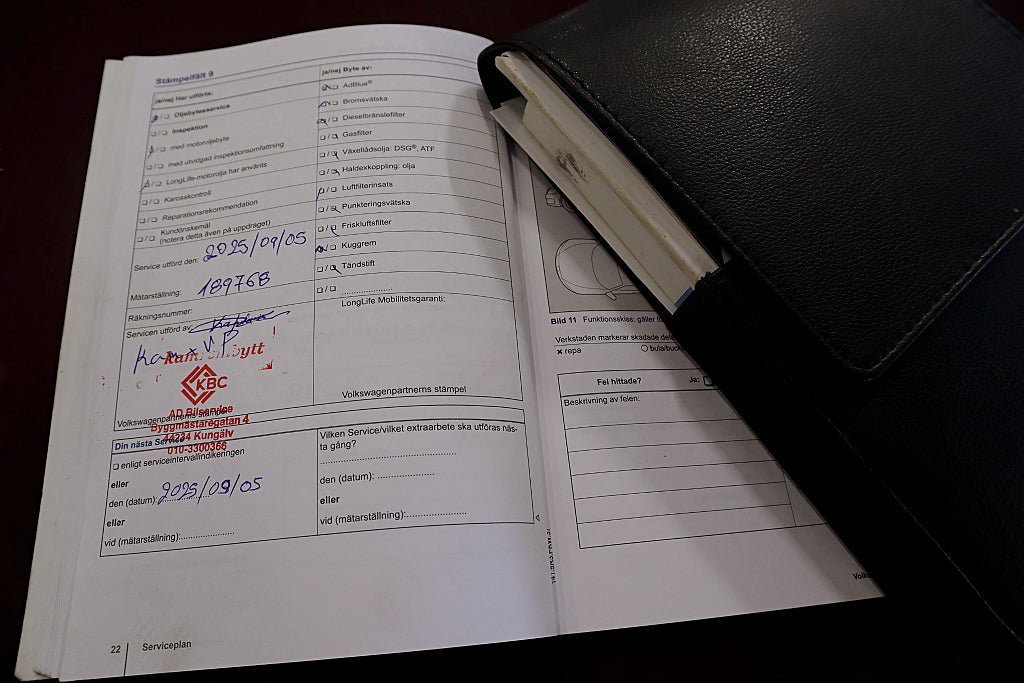 Stämpelfält 9
ja/nej Har utförts:
❑/❑ Oljebytesservice
❑/❑ Inspektion
❑/❑ med motoroljebyte
❑/❑ med utvidgad inspektionsomfattning
❑/❑ LongLife-motorolja har använts
❑/❑ Karosskontroll
❑/❑ Reparationsrekommendation
❑/❑ Kundönskemål
(notera detta även på uppdraget)
Service utförd den: 2025/09/05
Mätarställning: 189768
Räkningsnummer:
Servicen utförd av
KBC
AD Bilservice
Volkswagenpartnerns stämpel
Byggmästaregatan 4
44234 Kungälv
010-3300366
ja/nej Byte av:
❑/❑ AdBlue®
❑/❑ Bromsvätska
❑/❑ Dieselbränslefilter
❑/❑ Gasfilter
❑/❑ Växellådsolja: DSG®, ATF
❑/❑ Haldexkoppling: olja
❑/❑ Luftfilterinsats
❑/❑ Punkteringsvätska
❑/❑ Friskluftsfilter
❑/❑ Kuggrem
❑/❑ Tändstift
❑/❑ ....................
LongLife Mobilitetsgaranti:
Volkswagenpartnerns stämpel
Din nästa Service
❑ enligt serviceintervallindikeringen
eller
den (datum): 2025/09/05
eller
vid (mätarställning):....................
Vilken Service/vilket extraarbete ska utföras näs-
ta gång?
den (datum): ....................
eller
vid (mätarställning):....................
22 Serviceplan
Bild 11 Funktionsskiss: gäller
Verkstaden markerar skadade
× repa
Fel hittade? Ja: ❑
Beskrivning av felen: